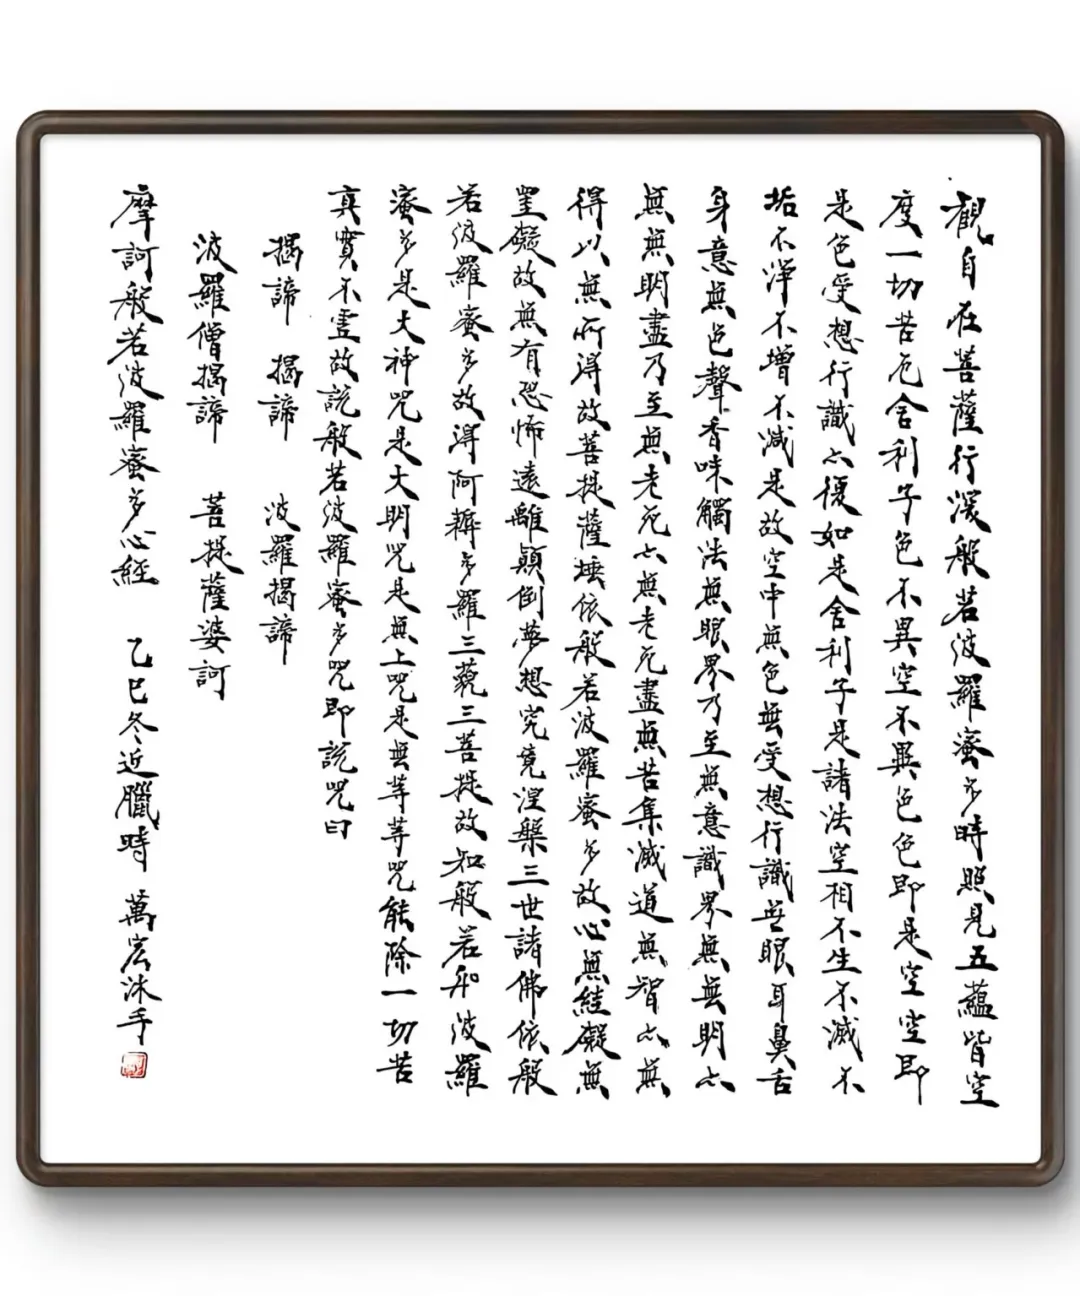 觀自在菩薩行深般若波羅蜜多時照見五蘊皆空
度一切苦厄舍利子色不異空不異色色即是空空即
是色受想行識亦復如是舍利子是諸法空相不生不滅不
垢不淨不增不減是故空中無色無受想行識無眼耳鼻舌
身意無色聲香味觸法無眼界乃至無意識界無無明亦
無無明盡乃至無老死亦無老死盡無苦集滅道無智亦無
得以無所得故菩提薩埵依般若波羅蜜多故心無罣礙無
罣礙故無有恐怖遠離顛倒夢想究竟涅槃三世諸佛依般
若波羅蜜多故得阿耨多羅三藐三菩提故知般若波羅
蜜多是大神咒是大明咒是無上咒是無等等咒能除一切苦
真實不虛故說般若波羅蜜多咒即說咒曰
揭諦 揭諦 波羅揭諦
波羅僧揭諦 菩提薩婆訶
摩訶般若波羅蜜多心經 乙巳冬近臘時 萬宏沐手